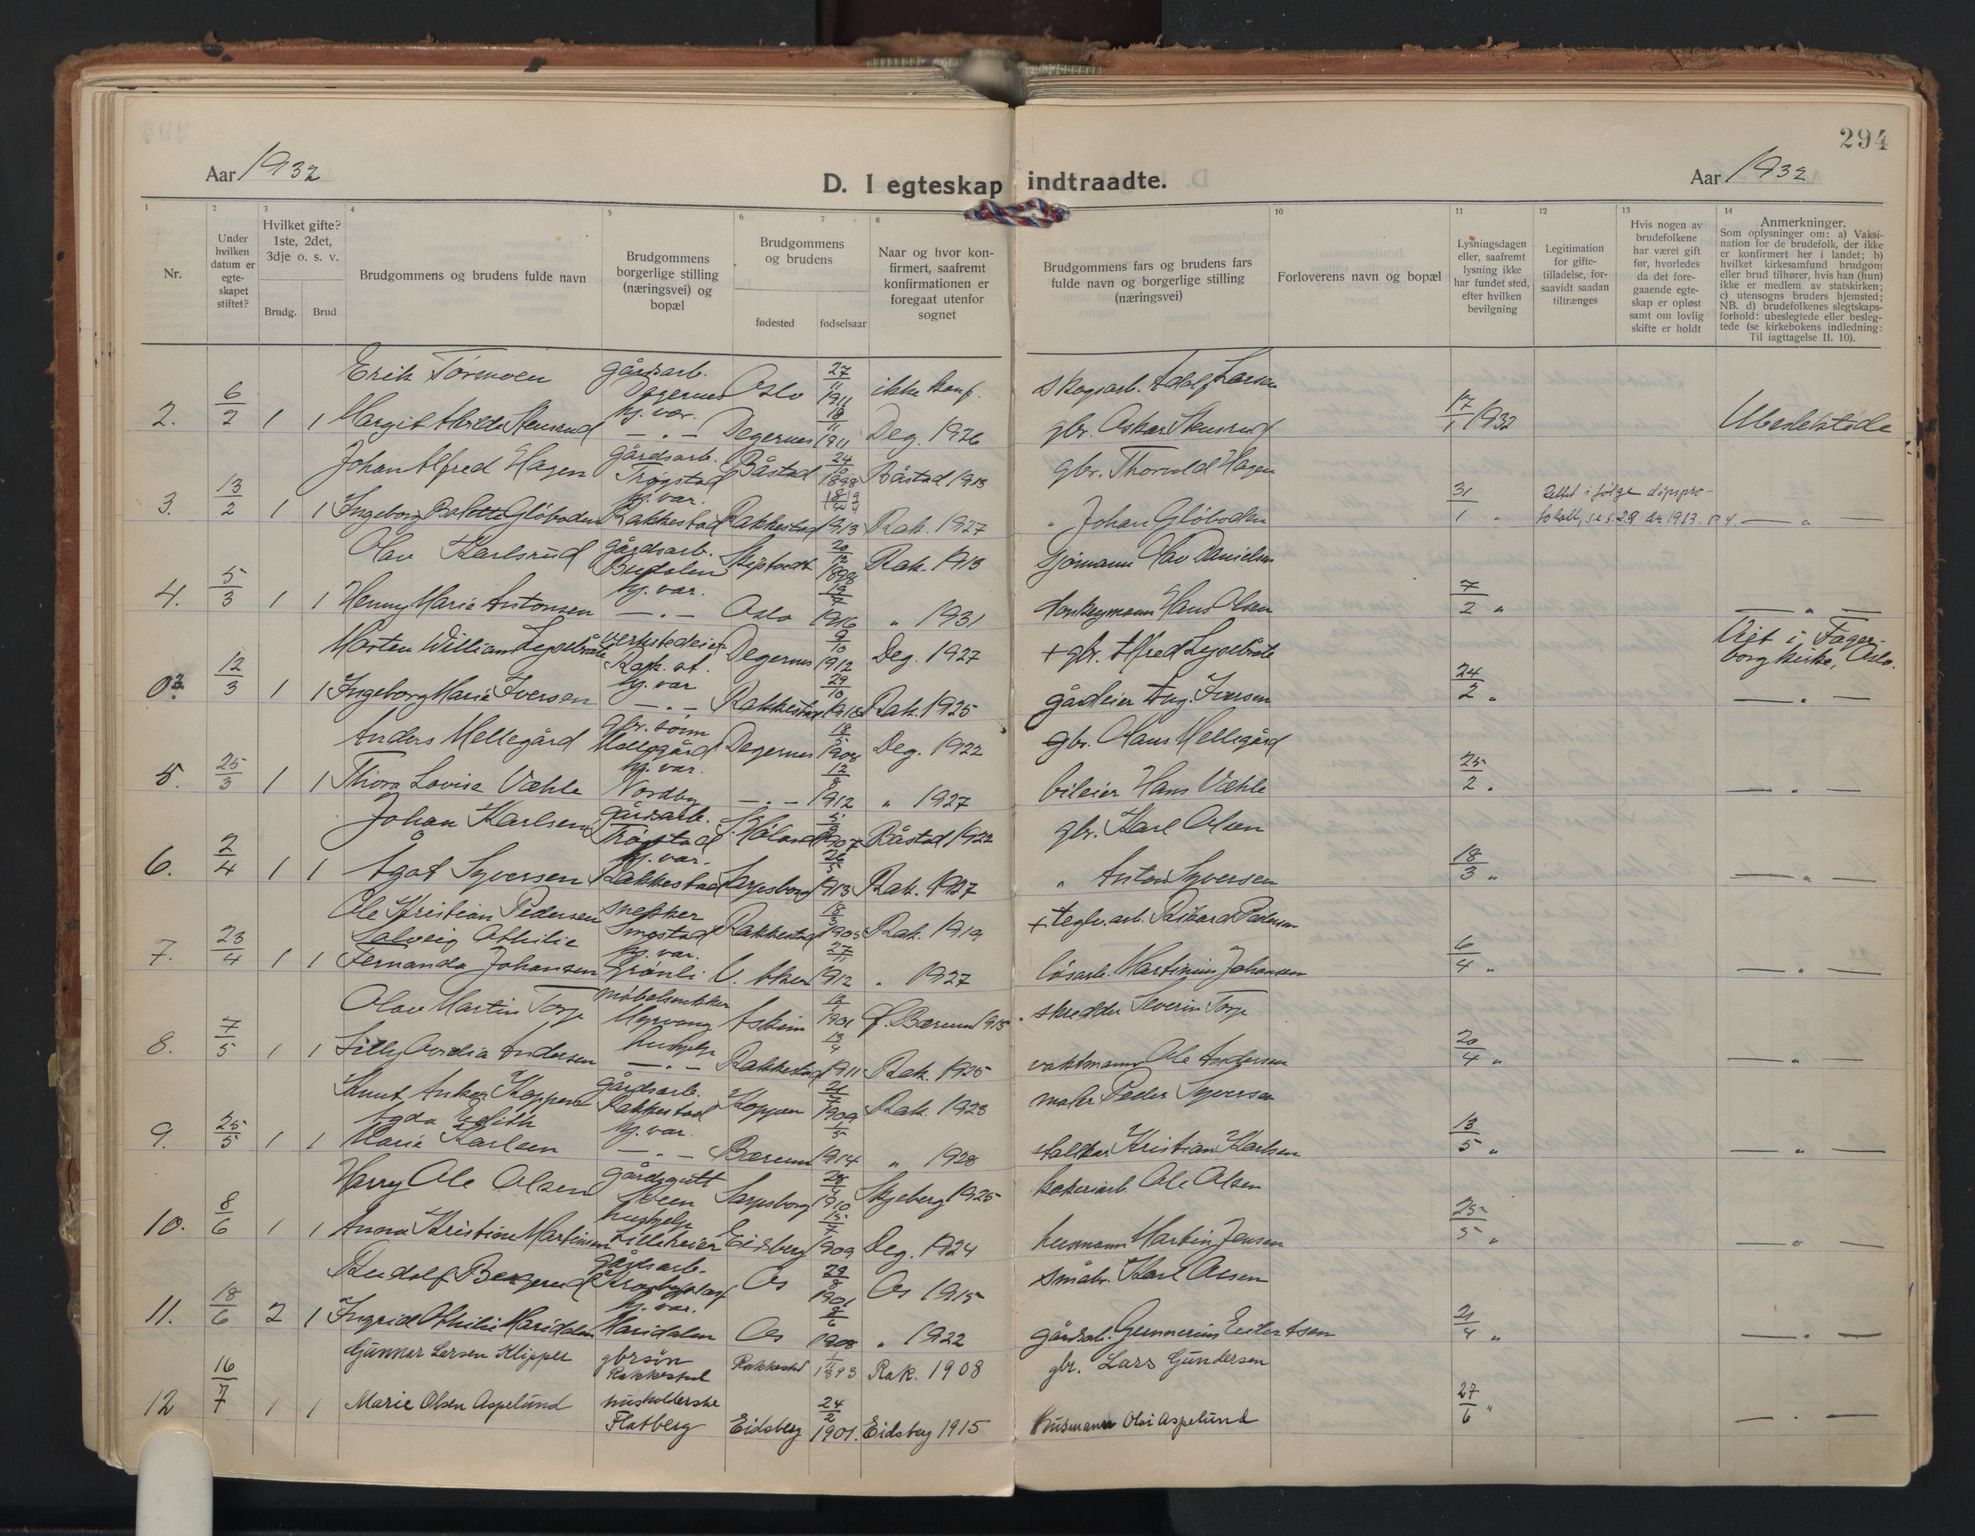 294
Aar 1932
D. I egteskap indtraadte.
Aar 1932
1 2 3 4 5 6 7 8 9 10 11 12 13 14
Nr.
Under hvilken datum er egteskapet stiftet?
Hvilket gifte? 1ste, 2det, 3dje o. s. v.
Brudg. Brud
Brudgommens og brudens fulde navn
Brudgommens borgerlige stilling (næringsvei) og bopæl
Brudgommens og brudens
fødested fødselsaar
Naar og hvor konfirmert, saafremt konfirmationen er foregaat utenfor sognet
Brudgommens fars og brudens fars fulde navn og borgerlige stilling (næringsvei)
Forloverens navn og bopæl
Lysningsdagen eller, saafremt lysning ikke har fundet sted, efter hvilken bevilgning
Legitimation for giftetilladelse, forsaavidt saadan tiltrænges
Hvis nogen av brudefolkene har været gift før, hvorledes da det foregaaende egteskap er opløst samt om lovlig skifte er holdt
Anmerkninger.
Som oplysninger om: a) Vaksination for de brudefolk, der ikke er konfirmert her i landet; b) hvilket kirkesamfund brudgom eller brud tilhører, hvis han (hun) ikke er medlem av statskirken; c) utensogns bruders hjemsted; NB. d) brudefolkenes slegtskapsforhold: ubeslegtede eller beslegtede (se kirkebokens indledning: Til iagttagelse II. 10).
Erik Tormoen gårdsarb. Degernes Oslo 27/11 1911 ikke konf. skogsarb. Adolf Larsen
2. 6/2 1 1 Margit Alvilde Stensrud hj. vær. — " — Degernes 18/11 1911 Deg. 1926 gbr. Oskar Stensrud 17/1 1932 Ubeslektede
Johan Alfred Hagen gårdsarb. Trøgstad Båstad 24/10 1898 Båstad 1913 gbr. Thorvald Hagen
3. 13/2 1 1 Ingeborg Glöboden hj. vær. Rakkestad Rakkestad 1913 Rak. 1927 " Johan Glöboden 31/1 " Rettet i følge døpsprotokoll, se s. 29 år 1913. — " —
Olav Karlsrud gårdsarb. Budalen Skiptvedt 20/12 1898 Rak. 1913 sjømann Danielsen
4. 5/3 1 1 Henny Marie Antonsen hj. vær. — " — Oslo 1916 " 1931 donkeymann Hans Olsen 7/2 " — " —
Morten William Lysebråte verkstedeier Rakk. st. Degernes 9/10 1912 Deg. 1927 + gbr. Alfred Lysebråte Viet i Fagerborg kirke, Oslo.
12/3 1 1 Ingeborg Marie Iversen hj. vær — " — Rakkestad 29/10 Rak. 1925 gårdeier Aug. Iversen 24/2 " — " —
Anders Mellegård gbr. sønn Mellegård Degernes Deg. 1922 gbr. Olaus Mellegård
5. 25/3 1 1 Thora Lovise Væhle hj. vær. Nordby — " — 12/8 1912 " 1927 bileier Hans Væhle 25/2 " — " —
Johan Karlsen gårdsarb. Trøgstad S. Höland 1907 Båstad 1922 gbr. Karl Olsen
6. 2/4 1 1 Agot Syversen hj. vær. Rakkestad Sarpsborg 26/5 1913 Rak. 1927 " Anton Syversen 18/3 " — " —
Ole Kristian Pedersen snekker Rakkestad 18/3 1905 Rak. 1919 + teglv.arb. Rikard Pedersen
7. 23/4 1 1 Solveig Othilie Fernanda Johansen hj. vær. Grönli V. Aker 1912 " 1927 løsarb. Martinius Johansen 6/4 " — " —
Olav Martin Torp møbelsnekker Askim 1901 Bærum 1915 skredder Severin Torp
8. 7/5 1 1 Lilly Andersen hushjelp — " — Rakkestad 13/4 1911 Rak. 1925 vaktmann Ole Andersen 20/4 " — " —
Knut Anker Koppen gårdsarb. Rakkestad 1909 Rak. 1923 maler Peder Syversen
9. 25/5 1 1 Agda Edith Marie Karlsen hj. vær. — " — Bærum 1/5 1914 " 1928 Kristian Karlsen 13/5 " — " —
Harry Ole Olsen gårdsgutt Moen Sarpsborg 1910 Skjeberg 1925 Ole Olsen
10. 8/6 1 1 Anna Kristine Martinsen hushjelp Lilleheier Eidsberg 15/7 1909 Deg. 1924 husmann Martin Jensen 25/5 " — " —
Rudolf Bergerud gårdsarb. Os 29/8 1901 Os 1915 småbr. Karl Olsen
11. 18/6 2 1 Ingrid Othilie Maridalen hj. vær. Maridalen Os 1908 " 1922 gårdsarb. Gunnerius Eilertsen 21/4 " — " —
Gunnar Larsen Klipper gbrsøn Rakkestad Rakkestad 1893 Rak. 1908 gbr. Lars Gundersen
12 16/7 1 1 Marie Olsen Aspelund husholderske Flatberg Eidsberg 24/2 1901. Eidsberg 1915 Husmann Olai Aspelund 27/6 " — " —